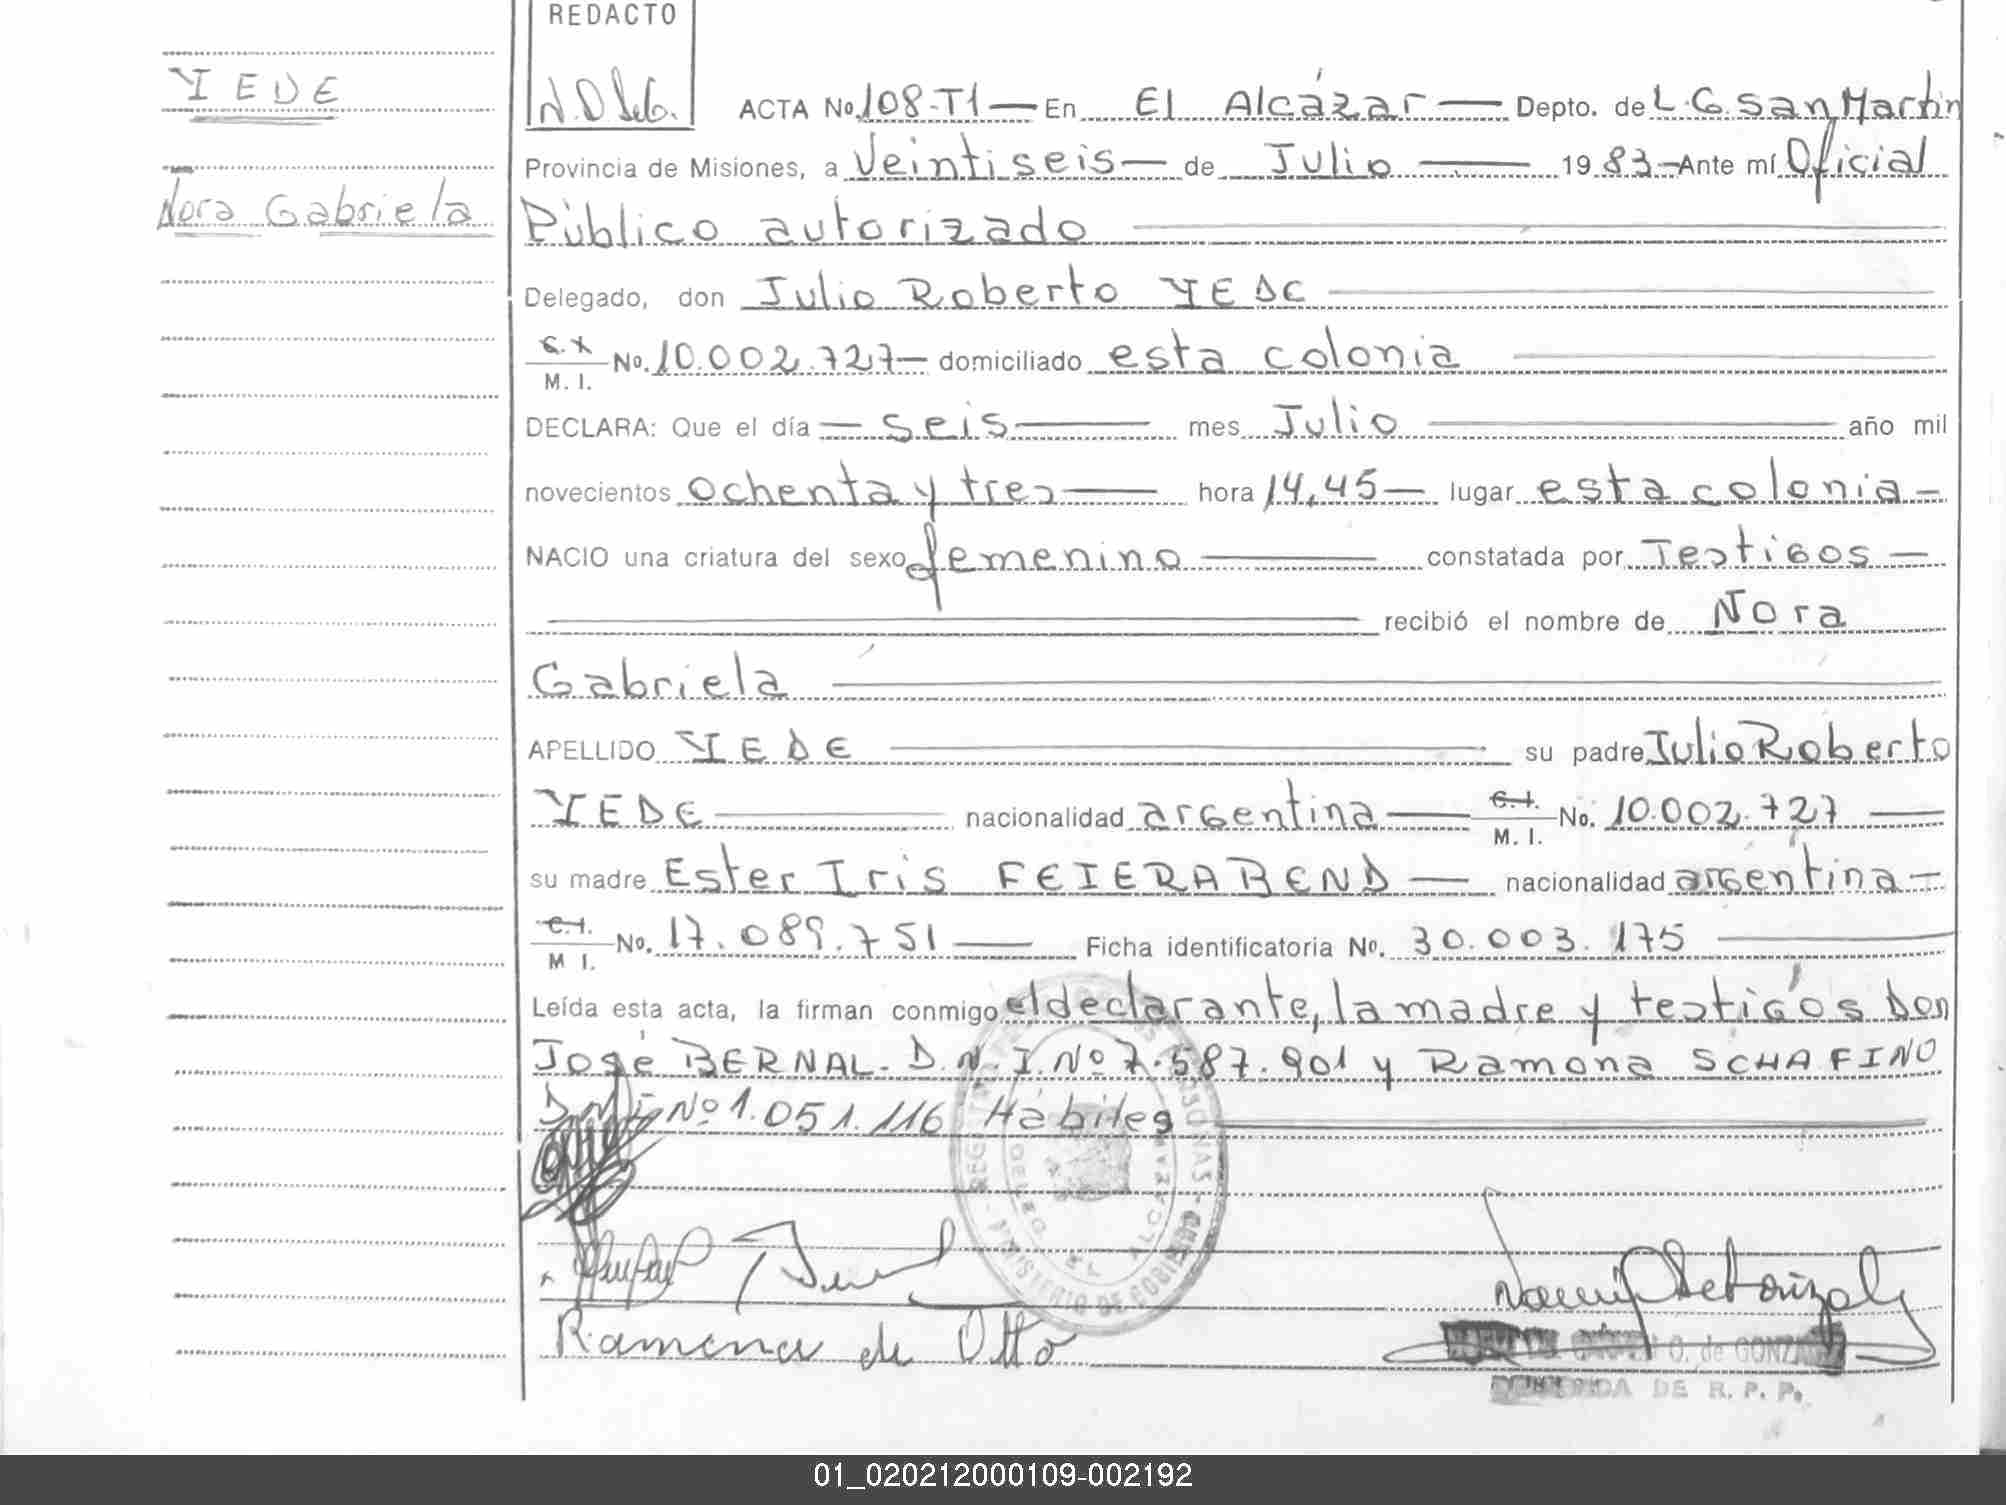 REDACTO
YEDE
Nora Gabriela
ACTA No. 108-T1 — En El Alcázar — Depto. de L.G. San Martín
Provincia de Misiones, a Veintiseis — de Julio — 1983 — Ante mí Oficial
Público autorizado
Delegado, don Julio Roberto YEDE
C.I. M. I. No. 10.002.727 — domiciliado esta colonia
DECLARA: Que el día — seis — mes Julio — año mil
novecientos ochenta y tres — hora 14,45 — lugar esta colonia —
NACIO una criatura del sexo femenino — constatada por Testigos —
recibió el nombre de Nora
Gabriela
APELLIDO YEDE — su padre Julio Roberto
YEDE — nacionalidad argentina — C.I. M. I. No. 10.002.727 —
su madre Ester Iris FEIERABEND — nacionalidad argentina —
C.I. M I. No. 17.089.751 — Ficha identificatoria No. 30.003.175
Leída esta acta, la firman conmigo el declarante, la madre y testigos Don
José BERNAL - D.N.I. Nº 7.587.901 y Ramona SCHAFINO
D.N.I. Nº 1.051.116 Hábiles
Ramona de Otto
O. de GONZALEZ
DE R. P. P.
01_020212000109-002192